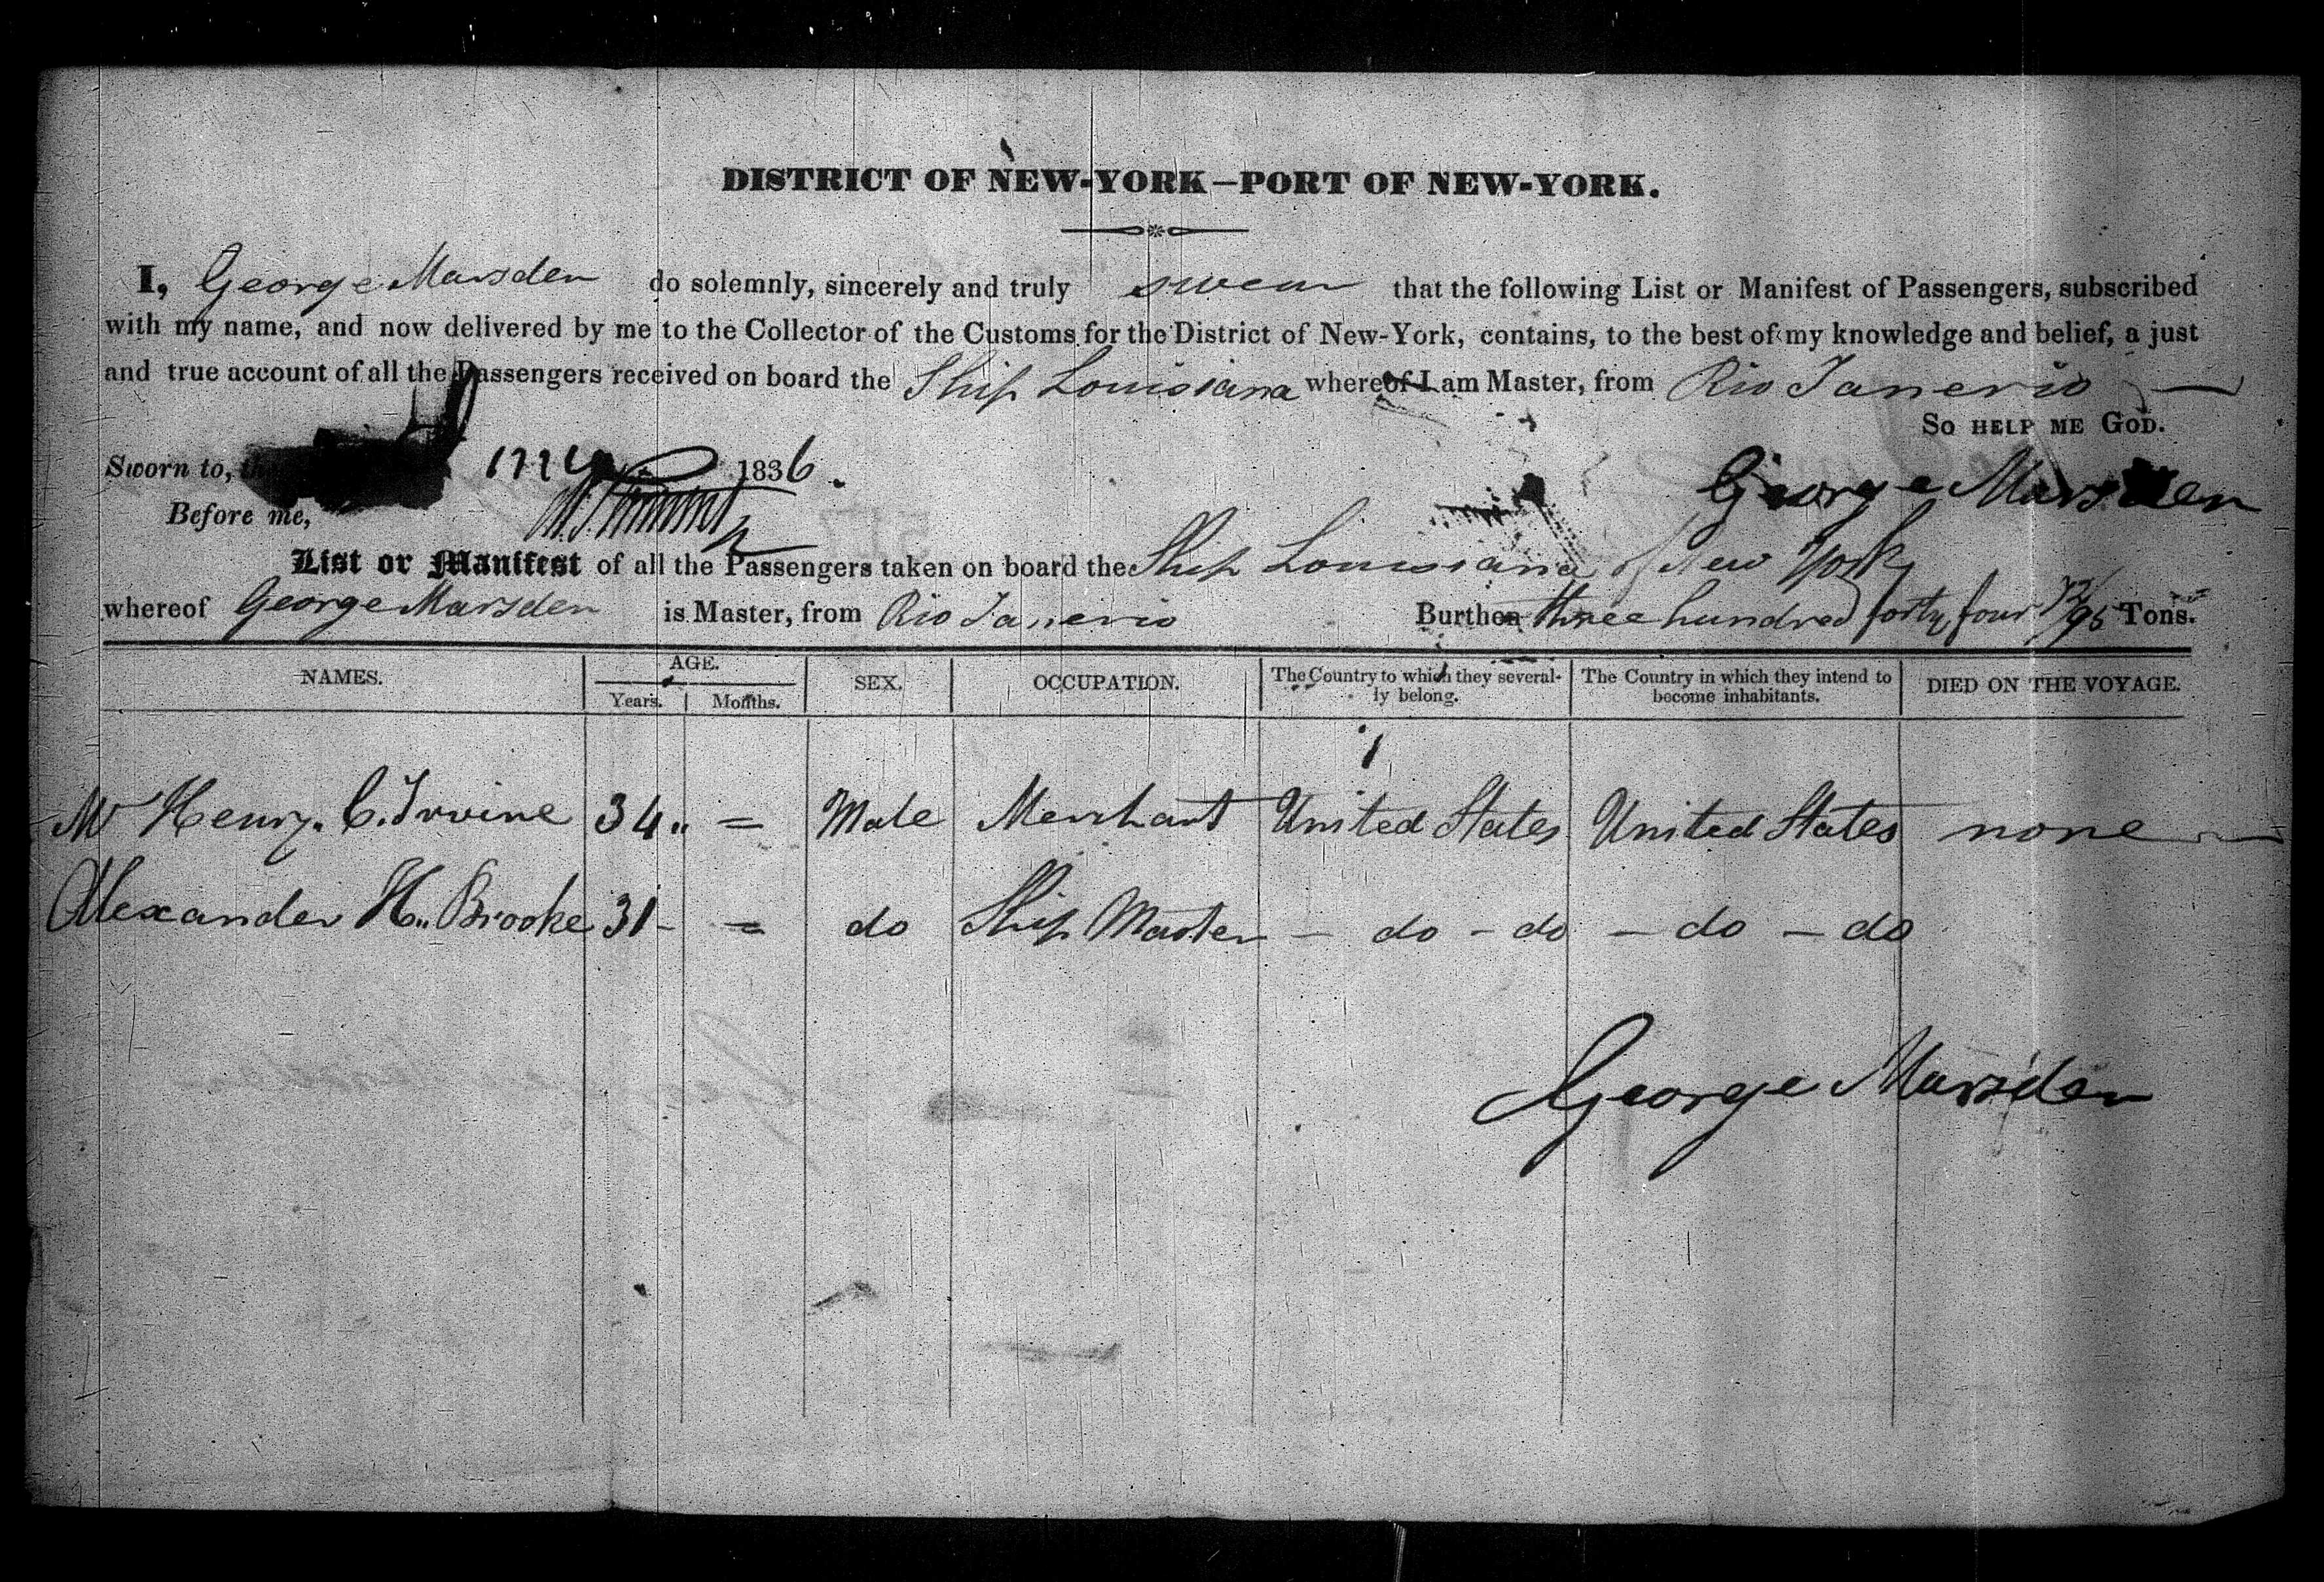 DISTRICT OF NEW-YORK—PORT OF NEW-YORK.
I, George Marsden do solemnly, sincerely and truly swear that the following List or Manifest of Passengers, subscribed
with my name, and now delivered by me to the Collector of the Customs for the District of New-York, contains, to the best of my knowledge and belief, a just
and true account of all the Passengers received on board the Ship Louisiana whereof I am Master, from Rio Janerio
So HELP ME GOD.
Sworn to, 1836.
George Marsden
Before me,
List or Manifest of all the Passengers taken on board the Ship Louisiana of New York
whereof George Marsden is Master, from Rio Janerio Burthen three hundred forty four 72/95 Tons.
NAMES. AGE. SEX. OCCUPATION. The Country to which they several- The Country in which they intend to DIED ON THE VOYAGE.
Years. Months. ly belong. become inhabitants.
Mr Henry. C. Irvine 34 " = Male Merchant United States United States none
Alexander H.. Brooke 31 - = do Ship Master - do - do - do - do
George Marsden